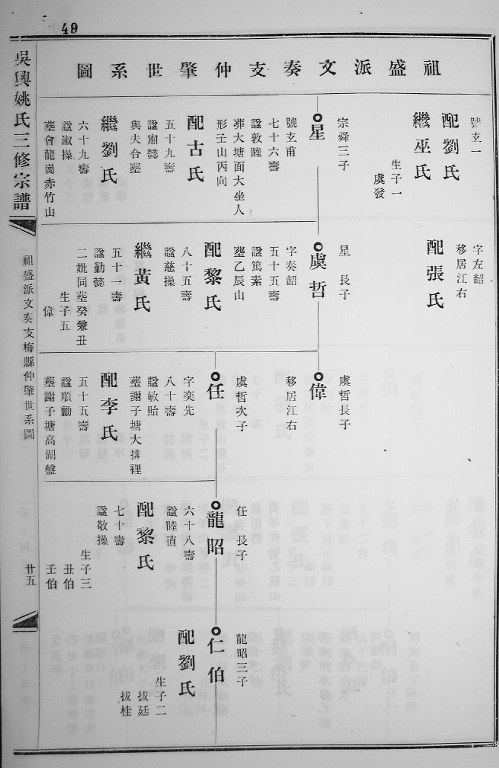 49
祖盛派文奏支仲肇世系圖
吳興姚氏三修宗譜
祖盛派文奏支梅縣仲肇世系圖
廿五
號玄一
配劉氏
繼巫氏
生子一
虞發
宗舜三子
星
號玄甫
七十六壽
諡敦睦
葬大塘面大坐人
形壬山丙向
配古氏
五十九壽
諡肅懿
與夫合塟
繼劉氏
六十九壽
諡淑操
塟會龍崗赤竹山
字左韶
移居江右
配張氏
星　長子
虞哲
字奏韶
五十五壽
諡篤素
塟乙辰山
配黎氏
八十五壽
諡慈操
繼黃氏
五十一壽
諡勤懿
二妣同塟癸兼丑
生子五
偉
虞哲長子
偉
移居江右
虞哲次子
任
字奕先
八十壽
諡敏貽
塟謝子塘大排裡
配李氏
五十五壽
諡順勤
塟謝子塘高湖盤
任　長子
龍昭
六十八壽
諡睦直
配黎氏
七十壽
諡敬操
生子三
丑伯
壬伯
龍昭三子
仁伯
配劉氏
生子二
拔廷
拔桂